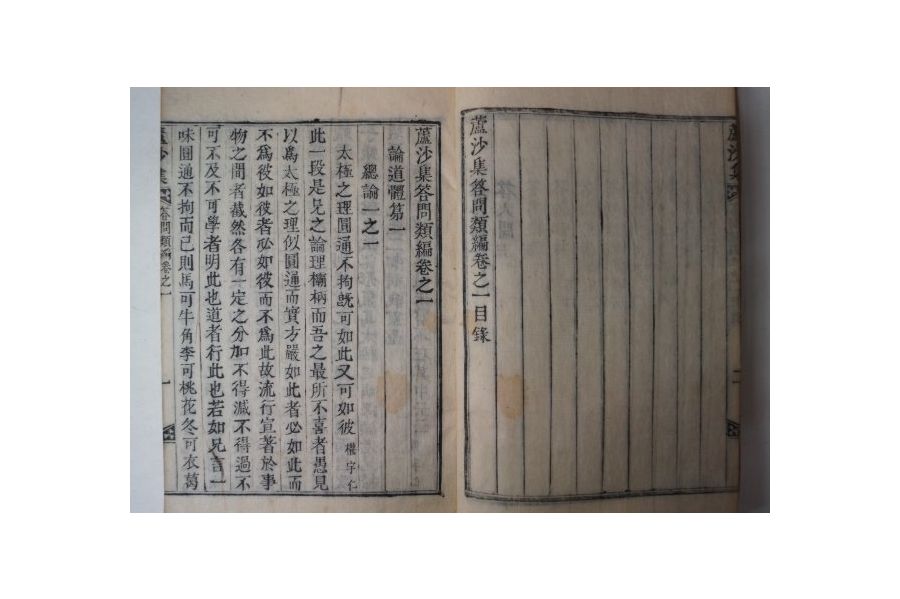 蘆沙集
二
蘆沙集答問類編卷之一目錄
蘆沙集答問類編卷之一
論道體第一
總論一之一
太極之理圓通不拘旣可如此又可如彼 權宇仁
此一段是兄之論理欛柄而吾之最所不喜者愚見
以爲太極之理似圓通而實方嚴如此者必如此而
不爲彼如彼者必如彼而不爲此故流行宣著於事
物之間者截然各有一定之分加不得減不得過不
可不及不可學者明此也道者行此也若如兄言一
味圓通不拘而已則馬可牛角李可桃花冬可衣葛
蘆沙集
答問類編卷之一
一